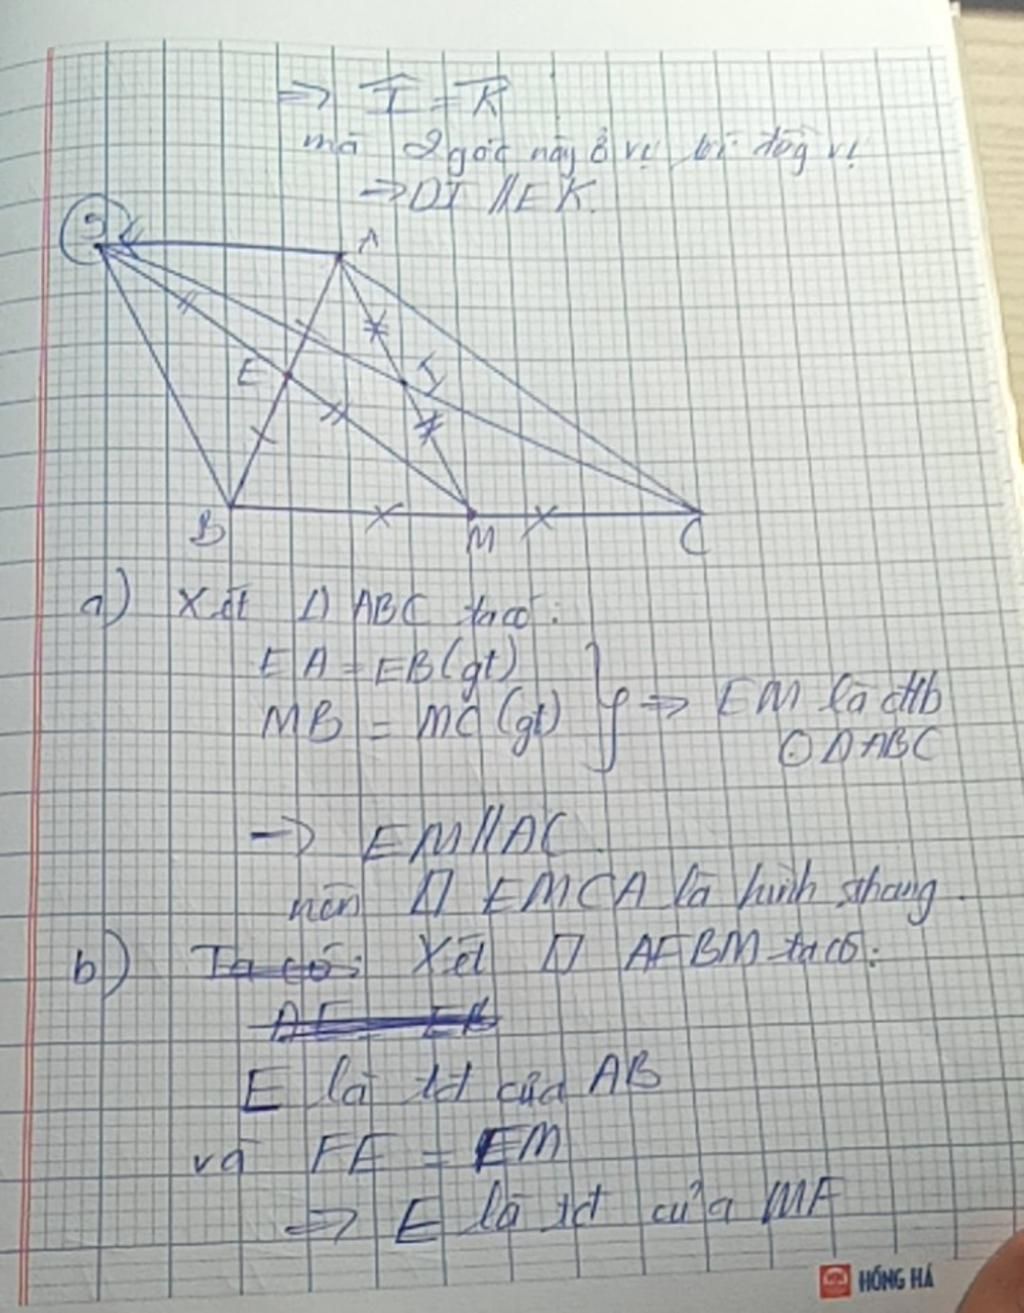 => Î = K̂
mà 2 góc này ở vị trí đồg vị
=> DI // EK.
A
E
I
B
M
C
a) Xét Δ ABC ta có:
EA = EB (gt)
MB = MC (gt)
=> EM là đtb
Δ ABC
-> EM // AC
nên EMCA là hình thang.
b) Ta có: Xét AFBM ta có:
AE EB
E là tđ của AB
và FE = EM
=> E là tđ của MF
HỒNG HÀ